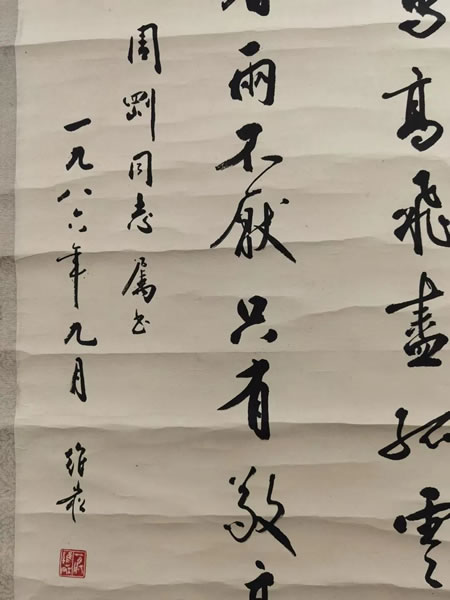 鳥高飛盡孤雲
看兩不厭只有敬亭
剛同志屬書
一九八六年九月 維崧